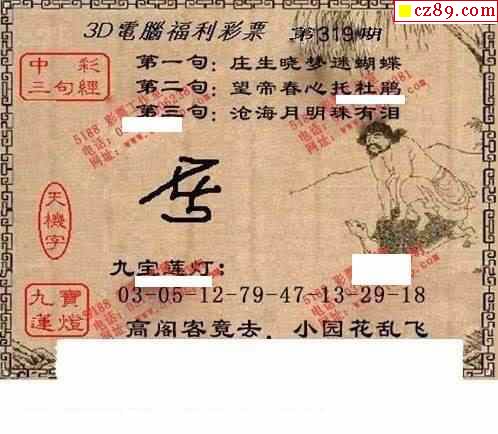 cz89.com
3D電腦福利彩票 第319期
中彩三句經
第一句：庄生晓梦迷蝴蝶
第二句：望帝春心托杜鹃
第三句：沧海月明珠有泪
天機字
九宝莲灯：
九寶蓮燈
03-05-12-79-47-13-29-18
高阁客竟去，小园花乱飞